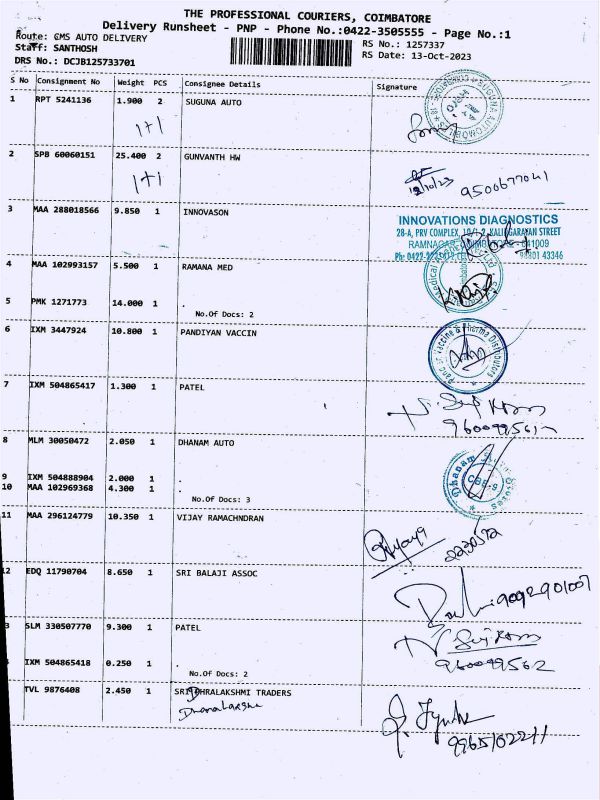 THE PROFESSIONAL COURIERS, COIMBATORE
Delivery Runsheet - PNP - Phone No.:0422-3505555 - Page No.:1
Route: CMS AUTO DELIVERY
RS No.: 1257337
Staff: SANTHOSH
RS Date: 13-Oct-2023
DRS No.: DCJB125733701
S No Consignment No Weight PCS Consignee Details Signature
1 RPT 5241136 1.900 2 SUGUNA AUTO
1+1
2 SPB 60060151 25.400 2 GUNVANTH HW
1+1 12/10/23 9500677041
3 MAA 288018566 9.850 1 INNOVASON
INNOVATIONS DIAGNOSTICS
28-A, PRV COMPLEX, KALINGARAYAN STREET
RAMNAGAR, COIMBATORE - 641009
Ph: 0422- 43346
4 MAA 102993157 5.500 1 RAMANA MED
5 PMK 1271773 14.000 1 .
No.Of Docs: 2
6 IXM 3447924 10.800 1 PANDIYAN VACCIN
Vaccine & Pharma Distributors
7 IXM 504865417 1.300 1 PATEL
8 MLM 30050472 2.050 1 DHANAM AUTO
Dhanam
CBE-9
9 IXM 504888904 2.000 1 .
10 MAA 102969368 4.300 1 .
No.Of Docs: 3
11 MAA 296124779 10.350 1 VIJAY RAMACHNDRAN
12 EDQ 11790704 8.650 1 SRI BALAJI ASSOC
9092901007
3 SLM 330507770 9.300 1 PATEL
960099562
IXM 504865418 0.250 1 .
No.Of Docs: 2
TVL 9876408 2.450 1 SRI DHRALAKSHMI TRADERS